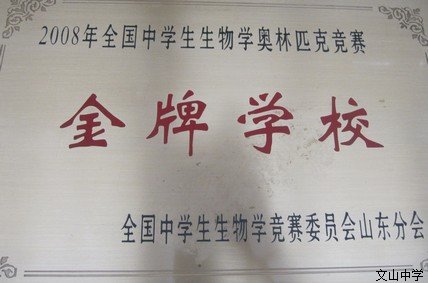 2008年全国中学生生物学奥林匹克竞赛
金牌学校
全国中学生生物学竞赛委员会山东分会
文山中学